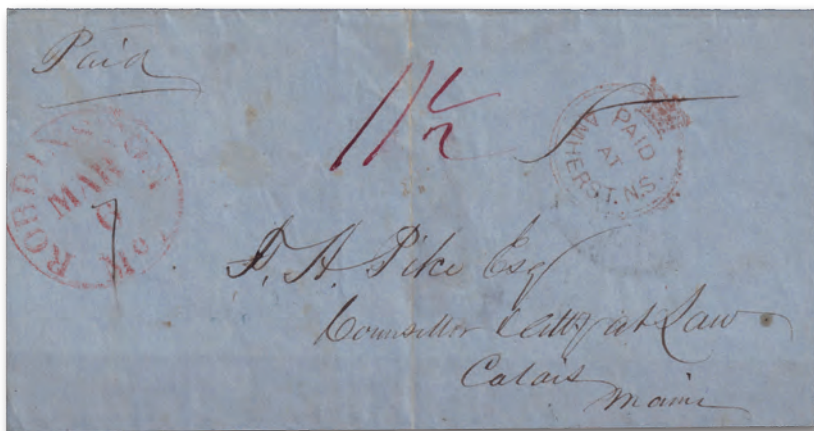 Paid
11½
PAID
AT
AMHERST. N.S.
ROBBINSTON Me
MAR
7
F. A. Pike Esq
Counsellor & Atty at Law
Calais
Maine